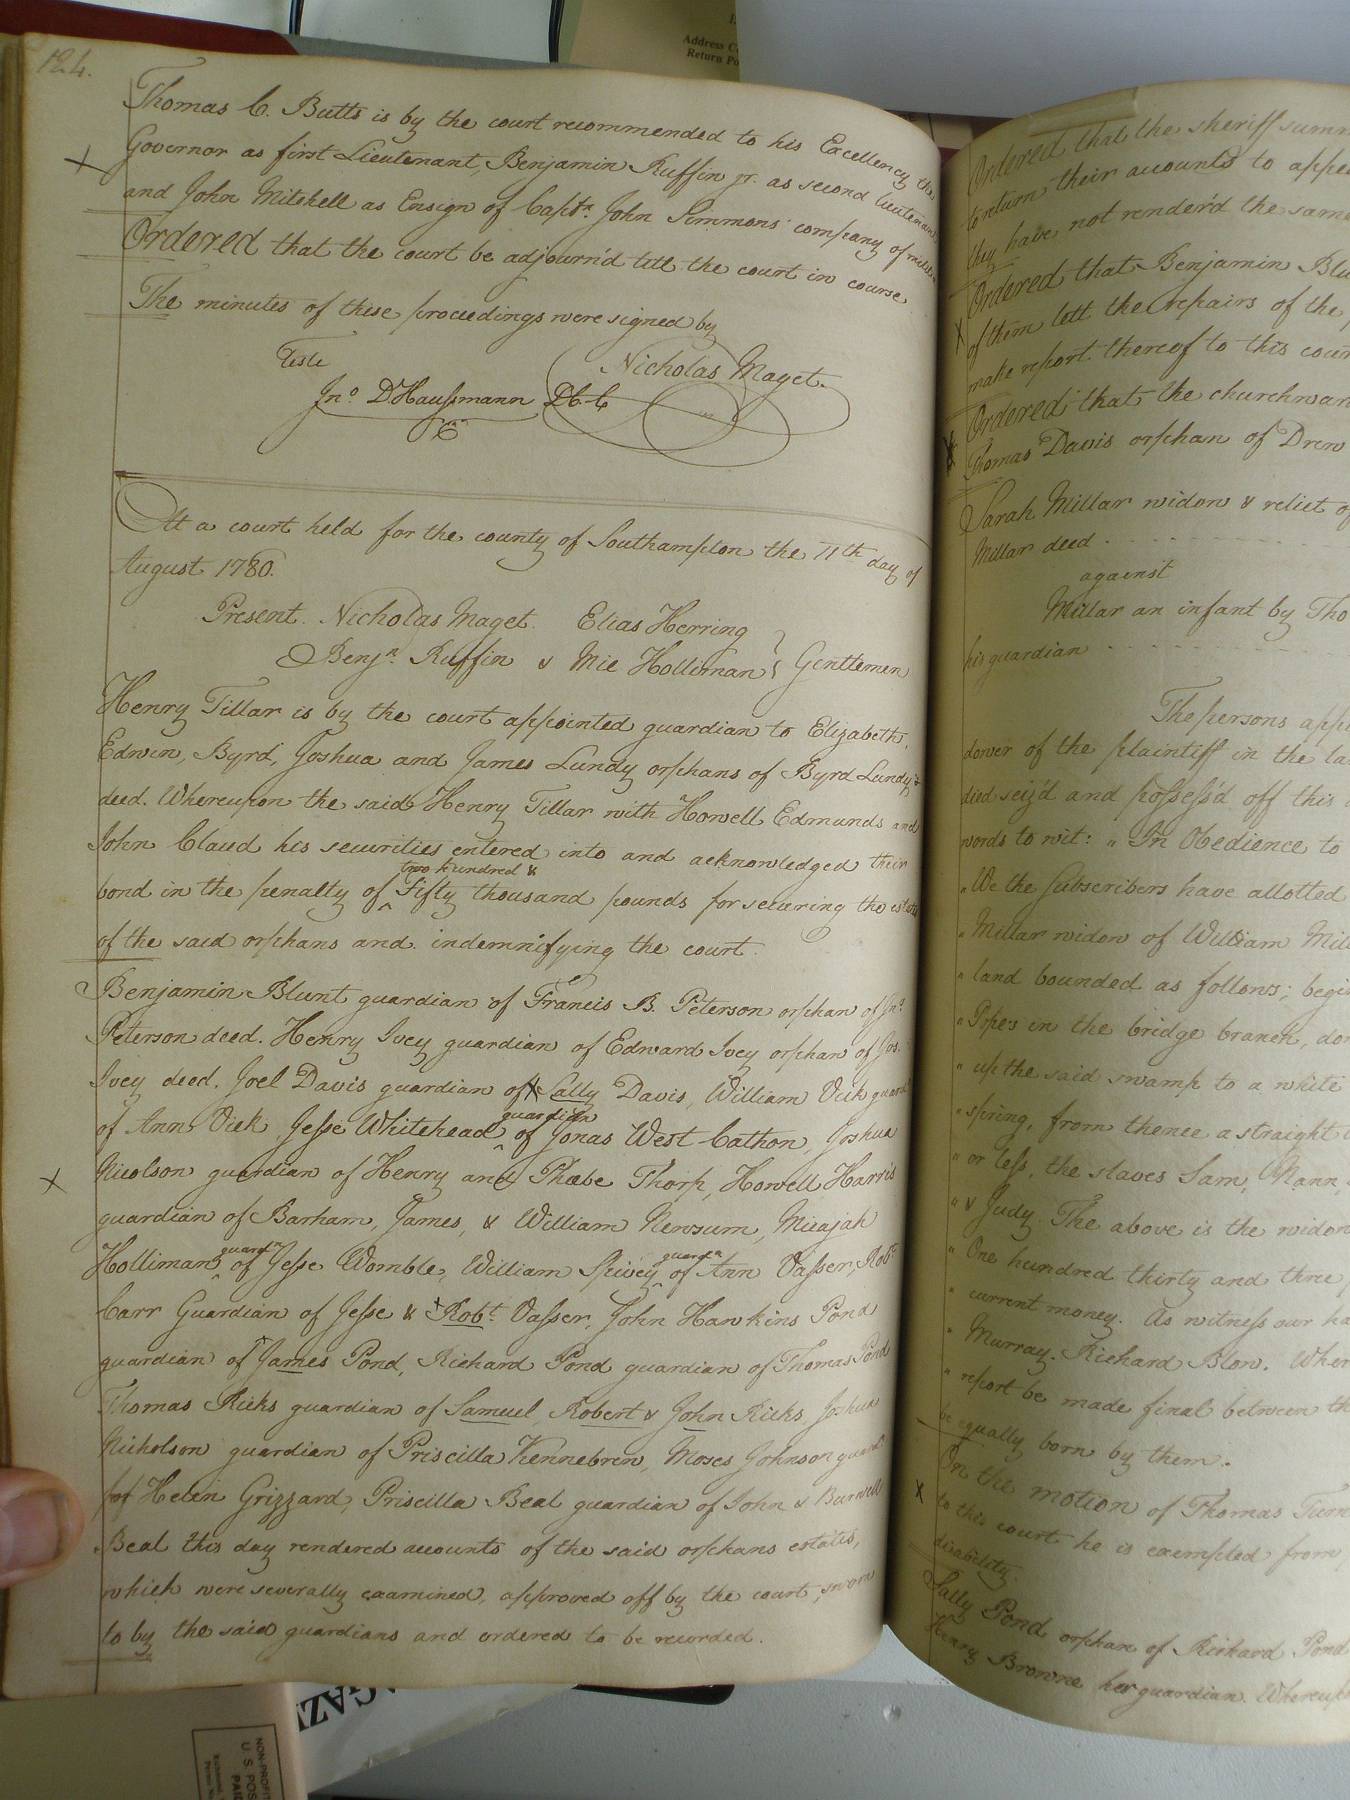 124.
Thomas C. Butts is by the court recommended to his Excellency the
Governor as first Lieutenant, Benjamin Ruffin jr. as second lieutenant
and John Mitchell as Ensign of Capt. John Simmons' company of militia
Ordered that the court be adjourn'd till the court in course
The minutes of these proceedings were signed by
Teste
Nicholas Maget.
Jno. D'Haussmann DC.C
At a court held for the county of Southampton the 11th day of
August 1780.
Present. Nicholas Maget. Elias Herring
Benjn. Ruffin & Mic Holliman Gentlemen
Henry Tillar is by the court appointed guardian to Elizabeth,
Edwin, Byrd, Joshua and James Lundy orphans of Byrd Lundy
deed. Whereupon the said Henry Tillar with Howell Edmunds and
John Claud his securities entered into and acknowledged their
two hundred &
bond in the penalty of Fifty thousand pounds for securing the estate
of the said orphans and indemnifying the court.
Benjamin Blunt guardian of Francis B. Peterson orphan of Jno.
Peterson deed. Henry Ivey guardian of Edward Ivey orphan of Jos.
Ivey deed. Joel Davis guardian of Sally Davis, William Vick guard
of Ann Vick, Jesse Whitehead guardian of Jonas West Cathon, Joshua
Nicolson guardian of Henry and Phœbe Thorp, Howell Harris
guardian of Barham, James, & William Newsum, Micajah
Holliman guardn of Jesse Womble, William Spivey guardn of Ann Vasser, Robt
Carr Guardian of Jesse & Robt. Vasser, John Hawkins Pond
guardian of James Pond, Richard Pond guardian of Thomas Pond
Thomas Ricks guardian of Samuel, Robert & John Ricks, Joshua
Nicholson guardian of Priscilla Kennebren, Moses Johnson guard
of Helen Grizzard, Priscilla Beal guardian of John & Burwell
Beal this day rendered accounts of the said orphans estates,
which were severally examined, approved off by the court, sworn
to by the said guardians and ordered to be recorded.
Ordered that the sheriff summ
to return their accounts to appe
they have not render'd the same
Ordered that Benjamin Blu
of them lett the repairs of the
make report thereof to this cour
Ordered that the churchwar
Thomas Davis orphan of Drew
Sarah Millar widow & relict of
Millar deed
against
Millar an infant by Tho
his guardian
The persons appo
dower of the plaintiff in the la
died seiz'd and possess'd off this
words to wit: "In Obedience to
"We the subscribers have allotted
"Millar widow of William Mil
"land bounded as follows; begi
"Pope's in the bridge branch, do
"up the said swamp to a white
"spring, from thence a straight
"or less, the slaves Sam, Nann,
"& Judy. The above is the widow
"One hundred thirty and three
"current money. As witness our ha
"Murray. Richard Blow. Wher
"report be made final between th
be equally born by them.
On the motion of Thomas Turn
to this court he is exempted from
disability.
Sally Pond orphan of Richard Pond
Henry Browne her guardian. Whereup
Address C
Return Po
GAZ
NON-PROFIT
U.S. POS
PAID